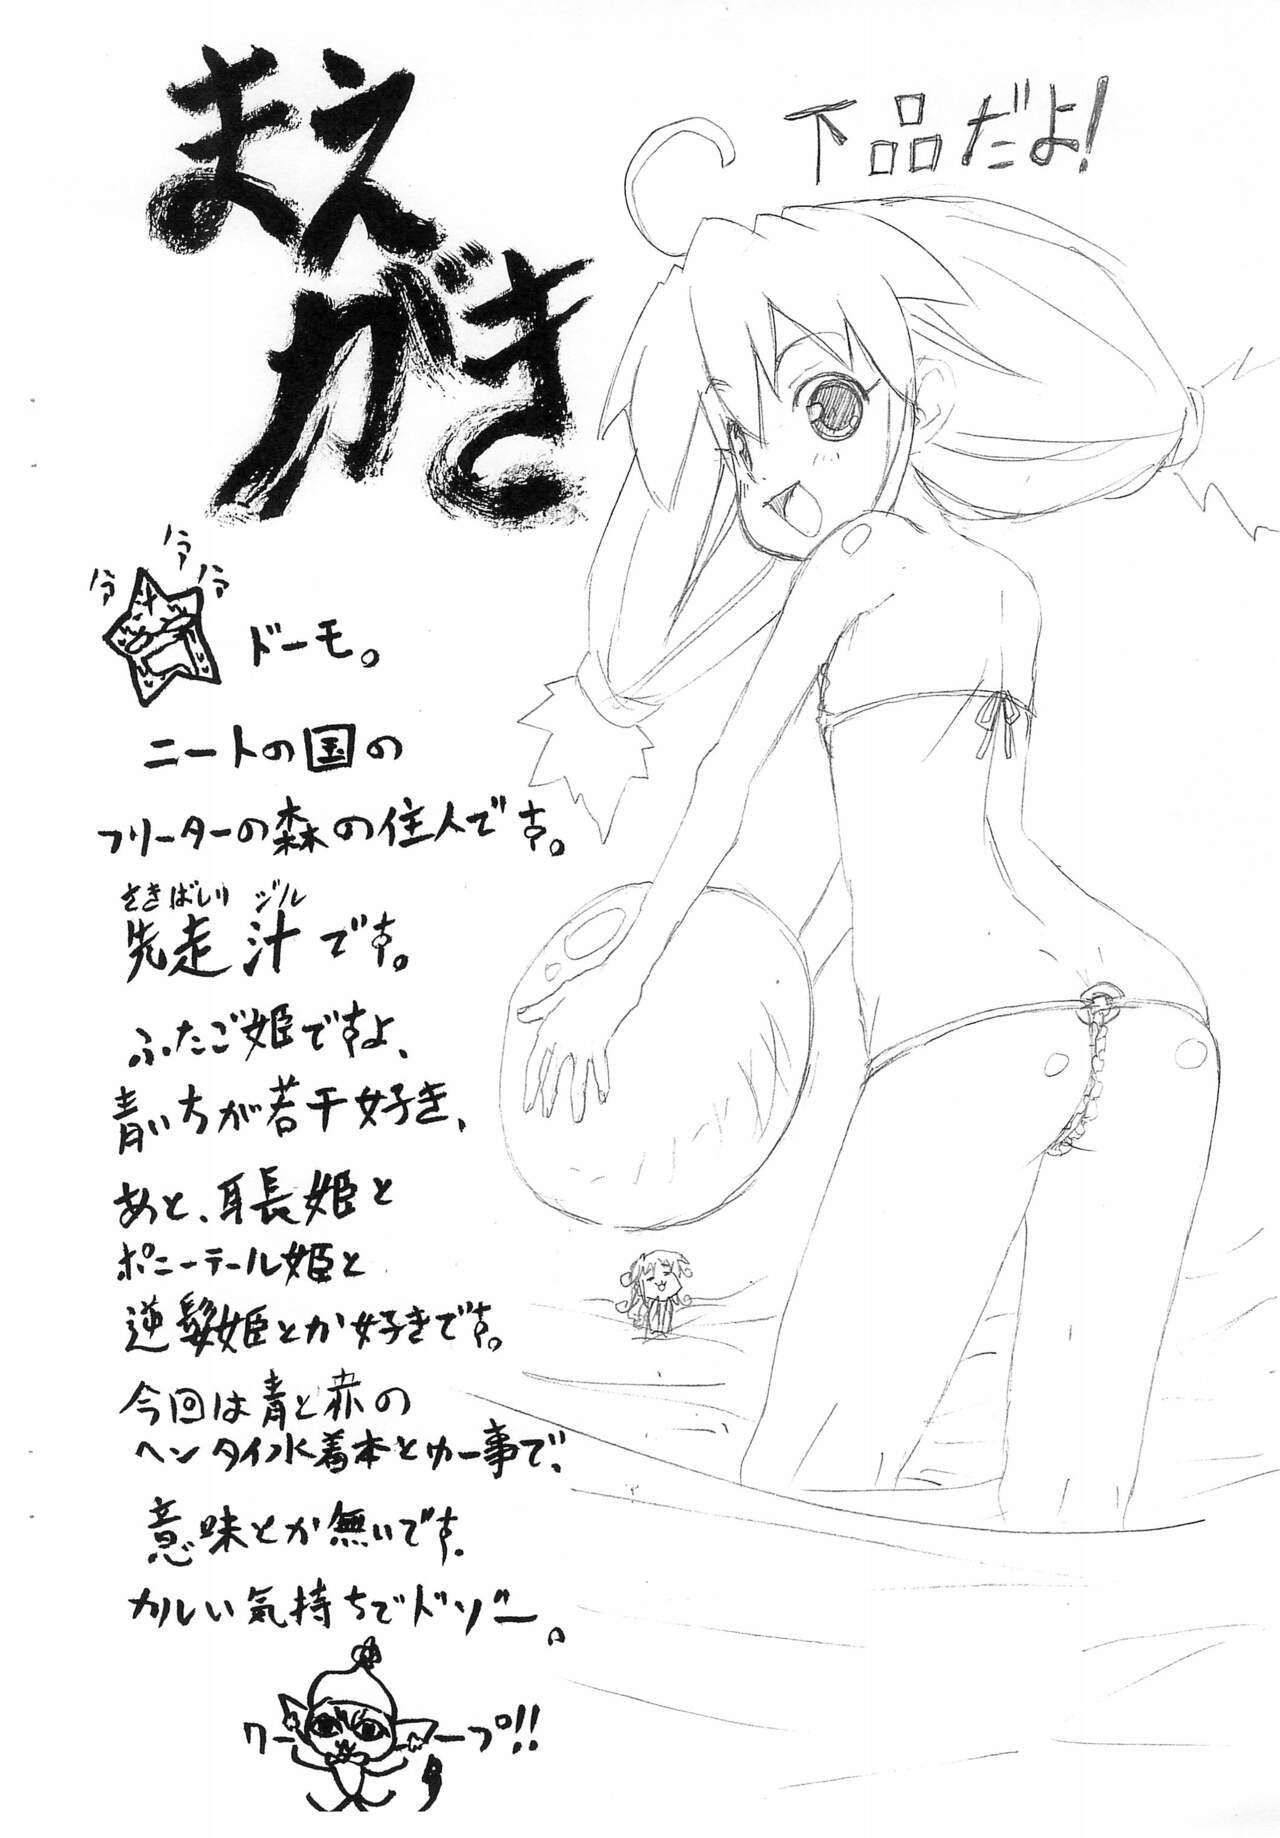 まえ
がき
下品だよ!
ドーモ。
ニートの国の
フリーターの森の住人です。
さきばしり ジル
先走 汁 です。
ふたご姫ですよ、
青いちが若干好き、
あと、耳長姫と
ポニーテール姫と
逆髪姫とか好きです。
今回は青と赤の
ヘンタイ水着本とゆー事で、
意味とか無いです。
カルい気持ちでドゾー。
プ!!